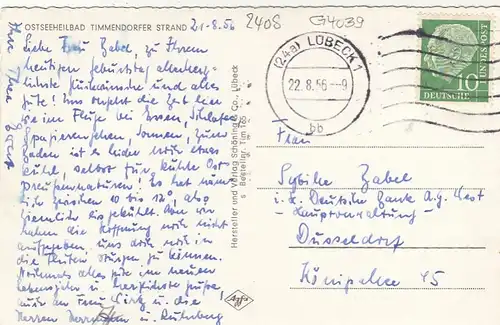 OSTSEEHEILBAD TIMMENDORFER STRAND
21.8.56
2408
G4039
Liebe Frau Zabel, zu Ihrem
heutigen Geburtstag allerherz-
lichste Glückwünsche und alles
Gute! Uns vergeht die Zeit hier
wie im Fluge bei Essen, Schlafen,
Spazierengehen, Sonnen, zum
Baden ist es leider noch etwas
kühl, selbst für
Ost-
preußennaturen! Es hat
zwischen 10 bis 120, also
ziemlich abgekühlt. Aber wir
haben die Hoffnung noch nicht
aufgegeben, uns doch noch in
die Fluten stürzen zu können.
Nochmals alles Gute im neuen
Lebensjahr u. herzlichste Grüße,
auch an Frau
u. die
Herren
u.
Ihre
Hersteller und Verlag Schöning & Co., Lübeck
s Bestellnr. Tim 165
Agfa
(24a) LÜBECK 1
22.8.56.-9
bb
DEUTSCHE BUNDESPOST
10
Frau
Sybille Zabel
i. Hs. Deutsche Bank A.G. West
- Hauptverwaltung -
Düsseldorf
Königsallee 45